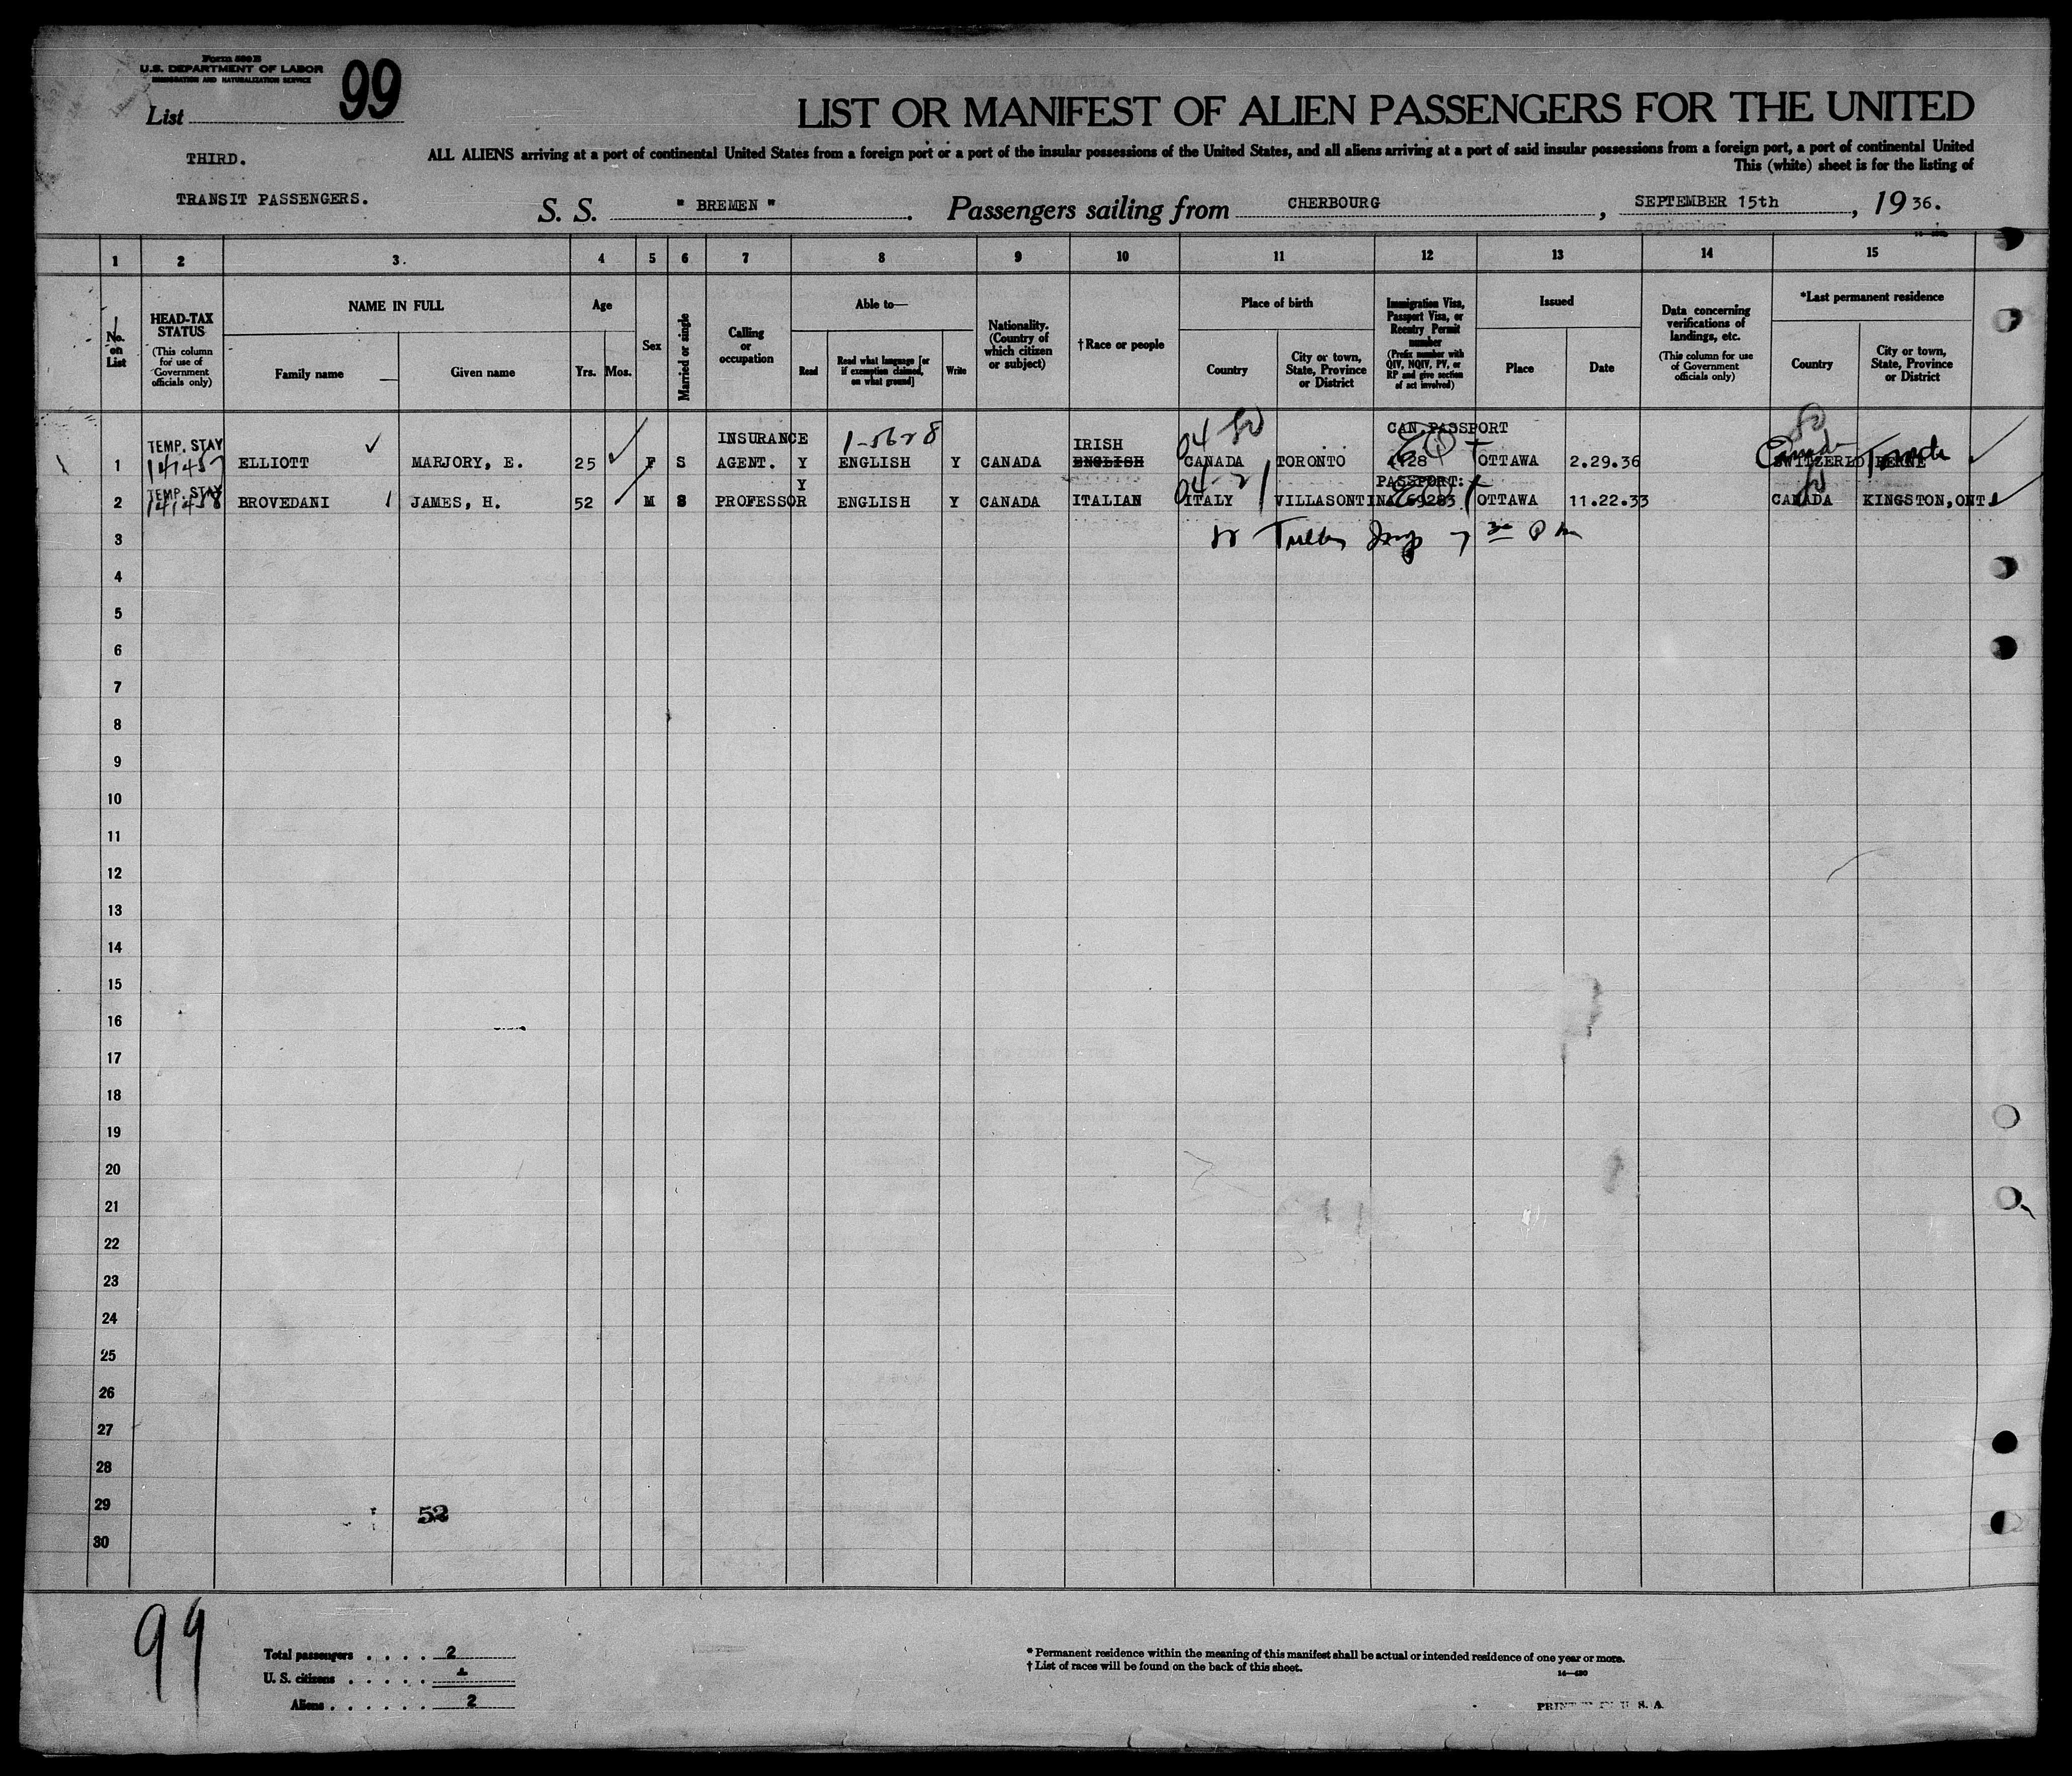 Form 500 B
U.S. DEPARTMENT OF LABOR
IMMIGRATION AND NATURALIZATION SERVICE
List 99
LIST OR MANIFEST OF ALIEN PASSENGERS FOR THE UNITED
THIRD.
ALL ALIENS arriving at a port of continental United States from a foreign port or a port of the insular possessions of the United States, and all aliens arriving at a port of said insular possessions from a foreign port, a port of continental United
This (white) sheet is for the listing of
TRANSIT PASSENGERS.
S. S. " BREMEN ". Passengers sailing from CHERBOURG, SEPTEMBER 15th, 1936.
1 2 3. 4 5 6 7 8 9 10 11 12 13 14 15
No. on List
HEAD-TAX STATUS
(This column for use of Government officials only)
NAME IN FULL
Family name
Given name
Age
Yrs. Mos.
Sex
Married or single
Calling or occupation
Able to—
Read
Read what language [or if exemption claimed, on what ground]
Write
Nationality. (Country of which citizen or subject)
†Race or people
Place of birth
Country
City or town, State, Province or District
Immigration Visa, Passport Visa, or Reentry Permit number
(Prefix number with QIV, NQIV, PV, or RP and give section of act involved)
Issued
Place
Date
Data concerning verifications of landings, etc.
(This column for use of Government officials only)
*Last permanent residence
Country
City or town, State, Province or District
TEMP. STAY INSURANCE IRISH 04 CAN. PASSPORT
1 141457 ELLIOTT MARJORY, E. 25 F S AGENT. Y ENGLISH Y CANADA ENGLISH CANADA TORONTO OTTAWA 2.29.36 SWITZERLD BERNE
TEMP. STAY Y PASSPORT:
2 141458 BROVEDANI JAMES, H. 52 M S PROFESSOR ENGLISH Y CANADA ITALIAN ITALY VILLASONTINA OTTAWA 11.22.33 CANADA KINGSTON, ONT.
3
4
5
6
7
8
9
10
11
12
13
14
15
16
17
18
19
20
21
22
23
24
25
26
27
28
29 52
30
99
Total passengers . . . . 2
U. S. citizens . . . . .
Aliens . . . . . . 2
* Permanent residence within the meaning of this manifest shall be actual or intended residence of one year or more.
† List of races will be found on the back of this sheet.
PRINTED IN U. S. A.